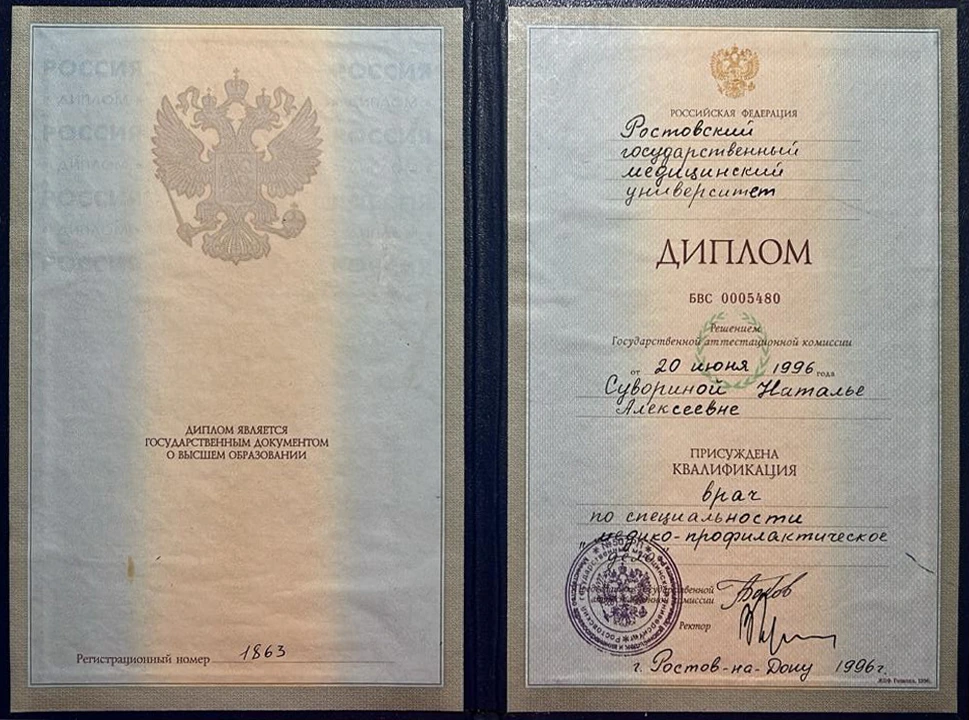 РОССИЯ РОССИЯ
РОССИЯ РОССИЯ
ДИПЛОМ ЯВЛЯЕТСЯ
ГОСУДАРСТВЕННЫМ ДОКУМЕНТОМ
О ВЫСШЕМ ОБРАЗОВАНИИ
Регистрационный номер 1863
РОССИЙСКАЯ ФЕДЕРАЦИЯ
Ростовский
государственный
медицинский
университет
ДИПЛОМ
БВС 0005480
Решением
Государственной аттестационной комиссии
от 20 июня 1996 года
Сувориной Наталье
Алексеевне
ПРИСУЖДЕНА
КВАЛИФИКАЦИЯ
врач
по специальности
"медико-профилактическое
дело"
Ректор
г. Ростов-на-Дону 1996г.